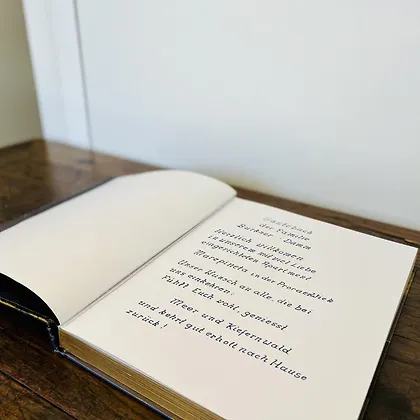 Gästebuch
der Familie
Büthner - Damm
Herzlich willkommen
in unserem mit viel Liebe
eingerichteten Apartment
Marepineta in der Proraer Wiek
Unser Wunsch an alle, die bei
uns einkehren:
Fühlt Euch wohl, genießt
Meer und Kiefernwald
und kehrt gut erholt nach Hause
zurück!